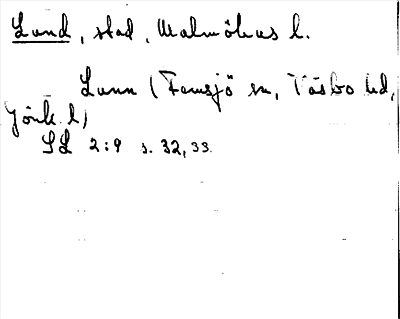 Lund, stad, Malmöhus l.
Lunn (Femsjö sn, Västbo hd,
Jönk. l)
SL 2:9 s. 32, 33.